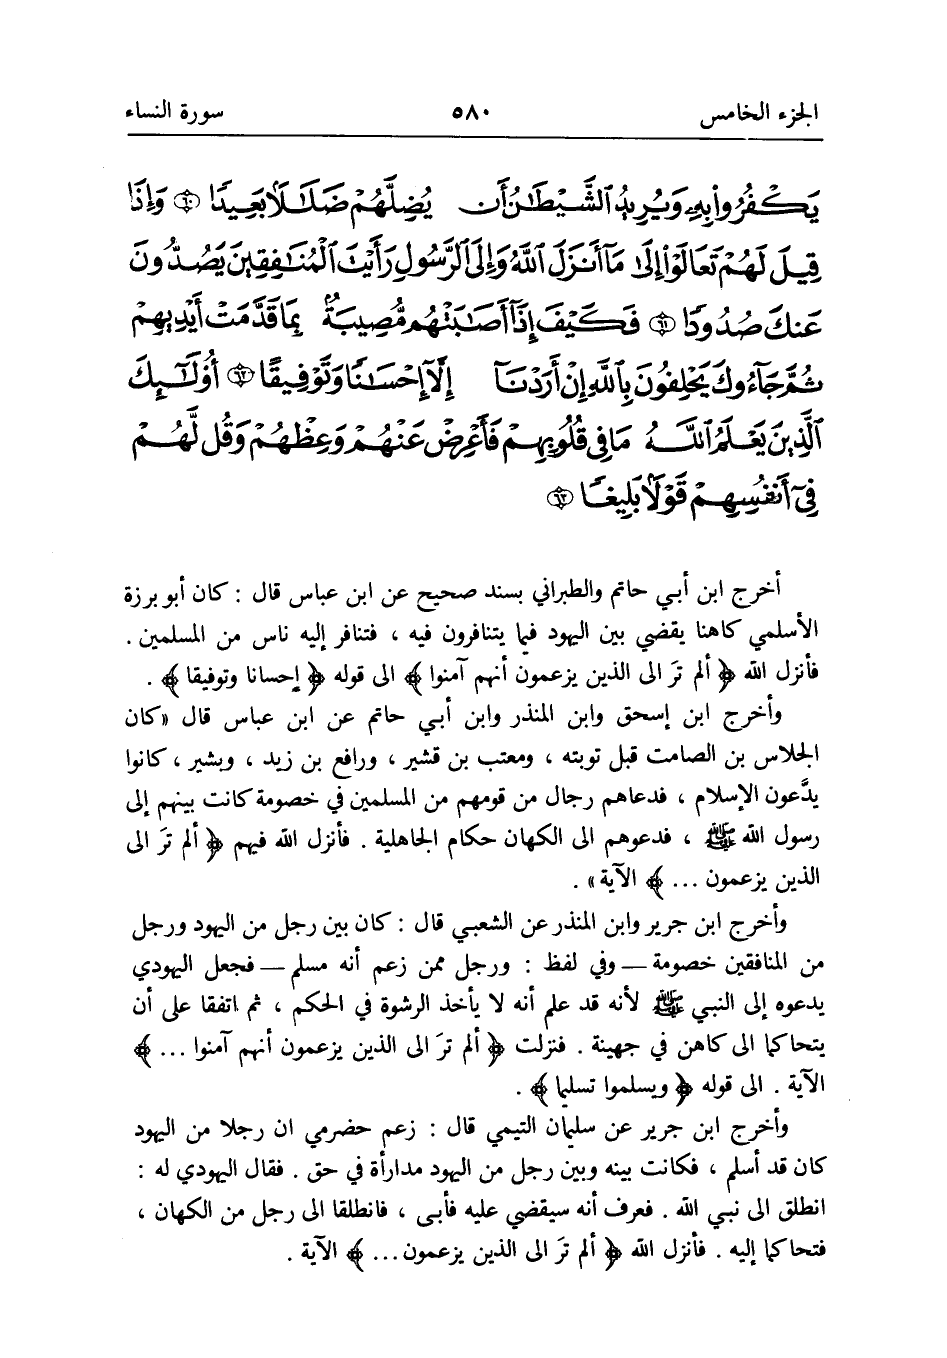 الجزء الخامس ٥٨٠ سورة النساء
يَكْفُرُوا۟ بِهِۦ وَيُرِيدُ ٱلشَّيْطَٰنُ أَن يُضِلَّهُمْ ضَلَٰلًۢا بَعِيدًا ۝٦٠ وَإِذَا
قِيلَ لَهُمْ تَعَالَوْا۟ إِلَىٰ مَآ أَنزَلَ ٱللَّهُ وَإِلَى ٱلرَّسُولِ رَأَيْتَ ٱلْمُنَٰفِقِينَ يَصُدُّونَ
عَنكَ صُدُودًا ۝٦١ فَكَيْفَ إِذَآ أَصَٰبَتْهُم مُّصِيبَةٌۢ بِمَا قَدَّمَتْ أَيْدِيهِمْ
ثُمَّ جَآءُوكَ يَحْلِفُونَ بِٱللَّهِ إِنْ أَرَدْنَآ إِلَّآ إِحْسَٰنًا وَتَوْفِيقًا ۝٦٢ أُو۟لَٰٓئِكَ
ٱلَّذِينَ يَعْلَمُ ٱللَّهُ مَا فِى قُلُوبِهِمْ فَأَعْرِضْ عَنْهُمْ وَعِظْهُمْ وَقُل لَّهُمْ
فِىٓ أَنفُسِهِمْ قَوْلًۢا بَلِيغًا ۝٦٣
أخرج ابن أبي حاتم والطبراني بسند صحيح عن ابن عباس قال : كان أبو برزة
الأسلمي كاهنا يقضي بين اليهود فيما يتنافرون فيه ، فتنافر إليه ناس من المسلمين .
فأنزل الله ﴿ ألم ترَ الى الذين يزعمون أنهم آمنوا ﴾ الى قوله ﴿ إحسانا وتوفيقا ﴾ .
وأخرج ابن إسحق وابن المنذر وابن أبي حاتم عن ابن عباس قال «كان
الجلاس بن الصامت قبل توبته ، ومعتب بن قشير ، ورافع بن زيد ، وبشير ، كانوا
يدَّعون الإسلام ، فدعاهم رجال من قومهم من المسلمين في خصومة كانت بينهم إلى
رسول الله ﷺ ، فدعوهم الى الكهان حكام الجاهلية . فأنزل الله فيهم ﴿ ألم ترَ الى
الذين يزعمون ... ﴾ الآية» .
وأخرج ابن جرير وابن المنذر عن الشعبي قال : كان بين رجل من اليهود ورجل
من المنافقين خصومة — وفي لفظ : ورجل ممن زعم أنه مسلم — فجعل اليهودي
يدعوه إلى النبي ﷺ لأنه قد علم أنه لا يأخذ الرشوة في الحكم ، ثم اتفقا على أن
يتحاكما الى كاهن في جهينة . فنزلت ﴿ ألم ترَ الى الذين يزعمون أنهم آمنوا ... ﴾
الآية . الى قوله ﴿ ويسلموا تسليما ﴾ .
وأخرج ابن جرير عن سليمان التيمي قال : زعم حضرمي ان رجلا من اليهود
كان قد أسلم ، فكانت بينه وبين رجل من اليهود مدارأة في حق . فقال اليهودي له :
انطلق الى نبي الله . فعرف أنه سيقضي عليه فأبى ، فانطلقا الى رجل من الكهان ،
فتحاكما إليه . فأنزل الله ﴿ ألم ترَ الى الذين يزعمون... ﴾ الآية .